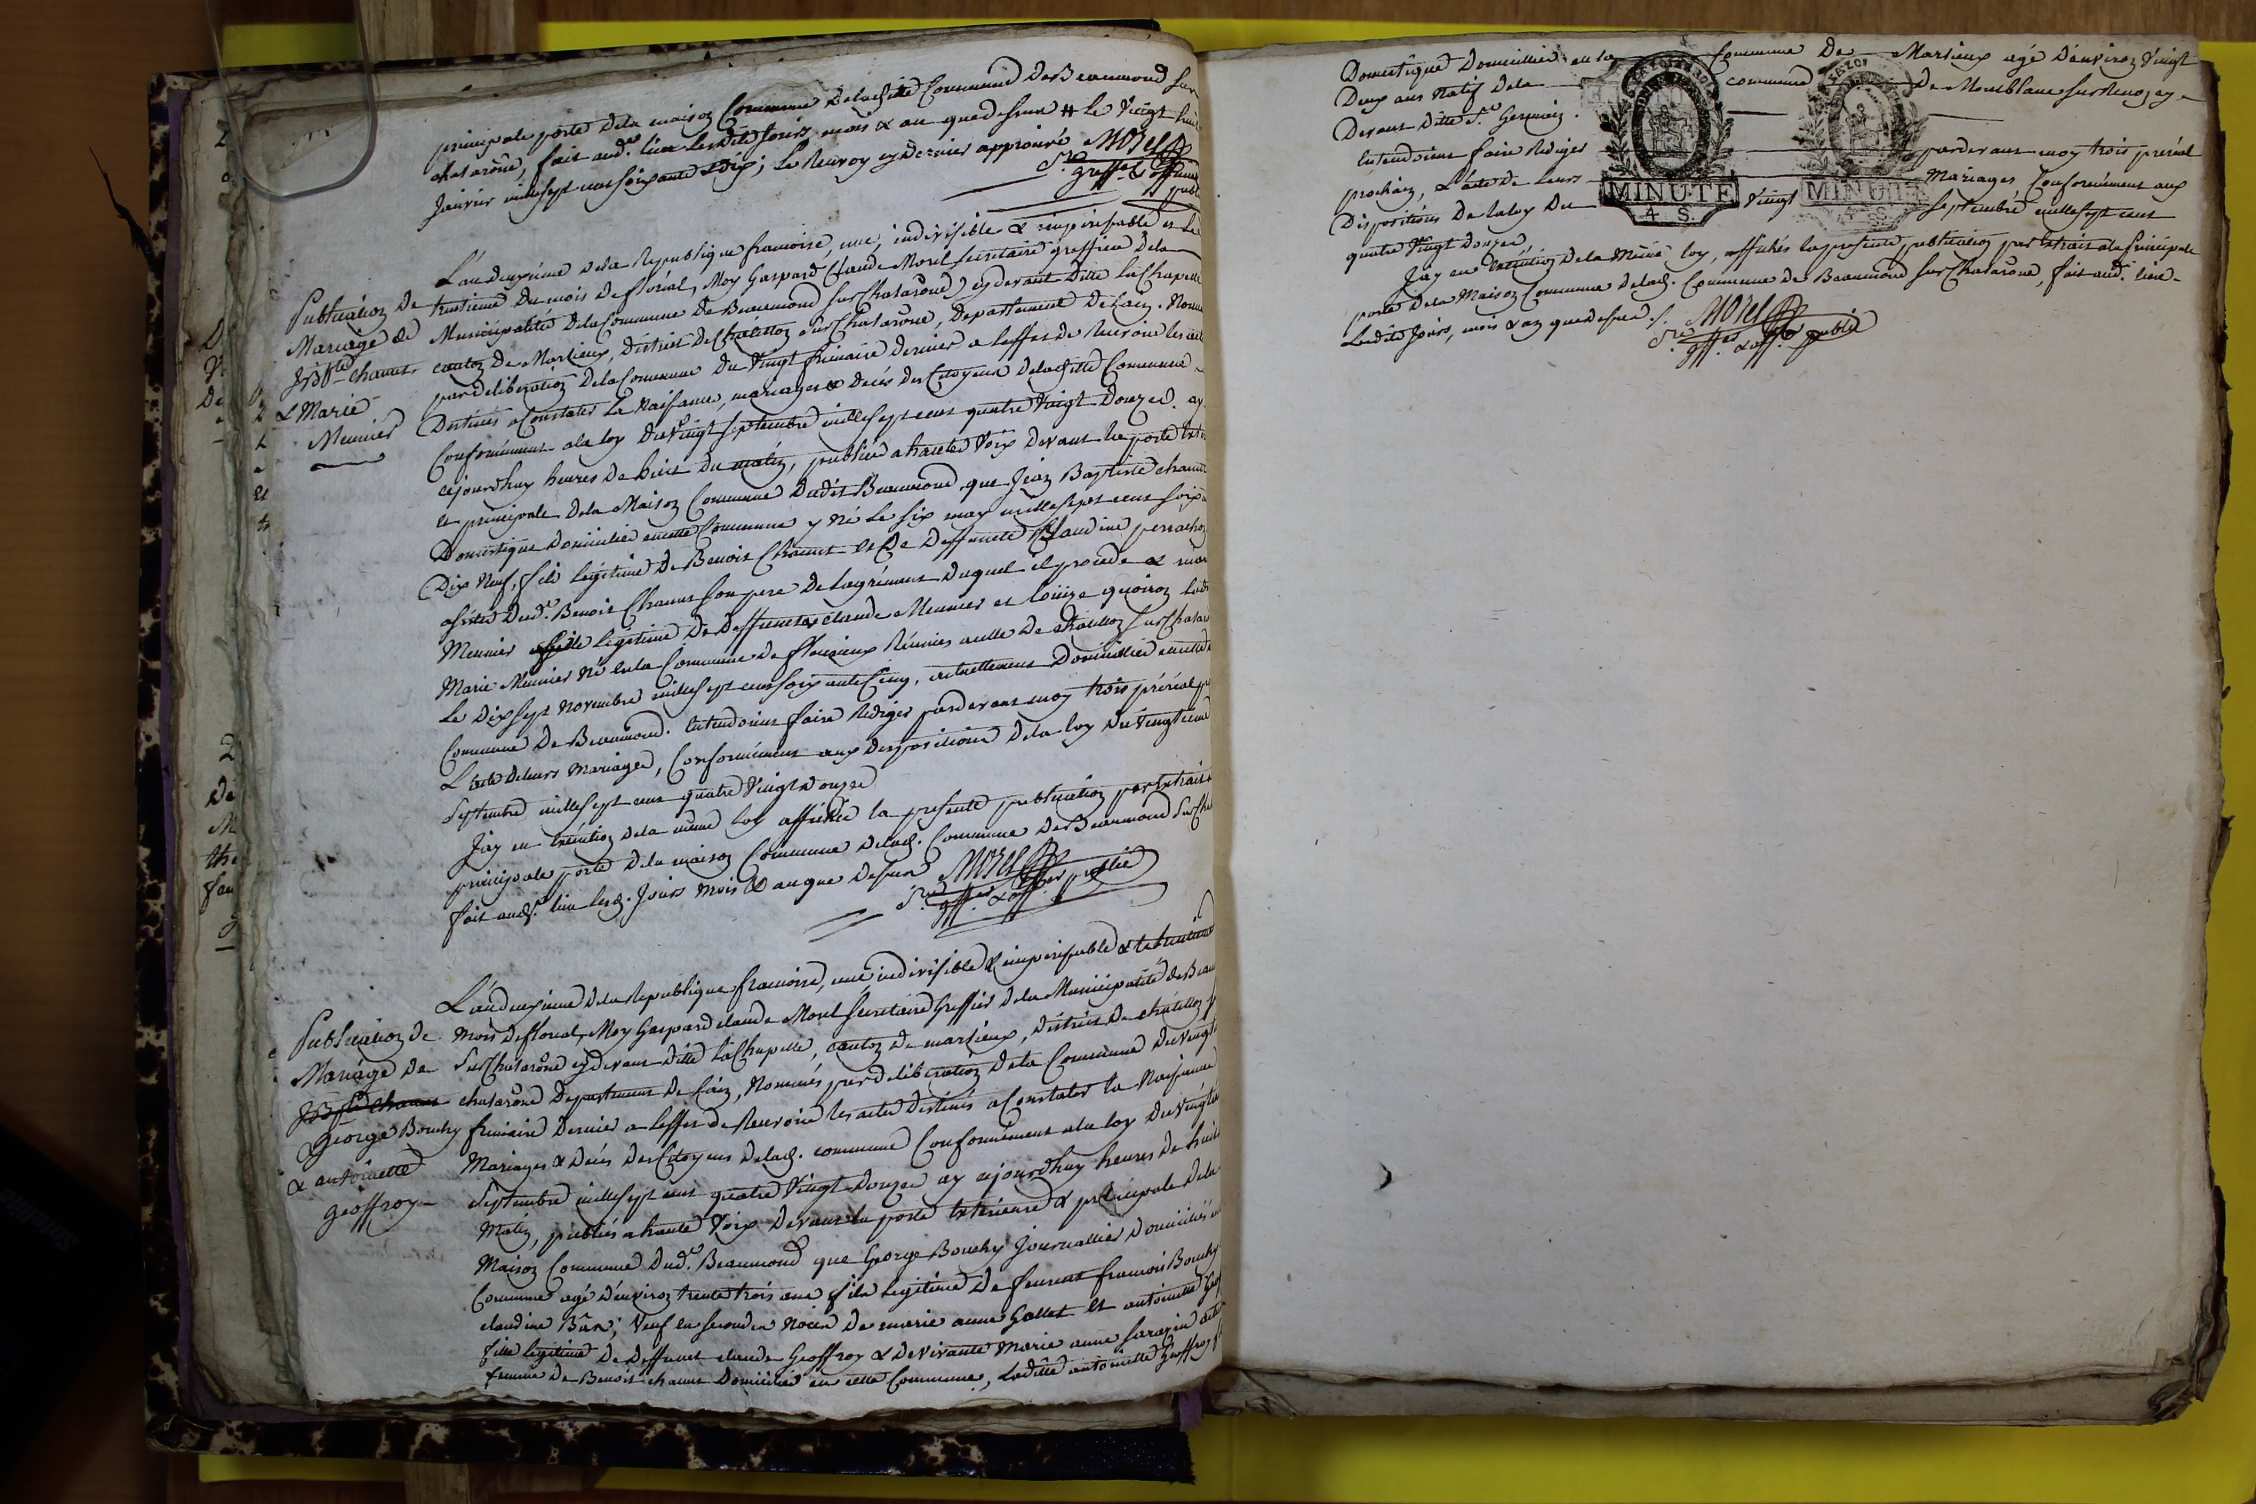 principale porte dela maison Commune deladitte Commune de Beaumond sur
chalarône, fait aud.t lieu lesdits jours mois & an que dessus # le vingt huit
janvier mille sept cent soixante & dix; le renvoy cy dernier approuvé Morel
S.re greff.er & off.er public
L'an deuxieme dela Republique francoise, une, indivisible & imperissable et le
Publication de
Mariage de
J. B.te Chanut
& Marie
Meunier
trentieme du mois de floréal, Moy Gaspard Claude Morel secretaire greffier dela
Municipalité dela Commune de Beaumond sur Chalarône cy devant ditte La Chapelle
canton de Marlieux, district de Chatillon sur Chalarône, departement de Lain. Nommé
par deliberation dela Commune du vingt frimaire dernier a leffet de recevoir les actes
destinés a Constater la naissance, mariages & decés des Citoyens deladitte Commune
Conformément ala loy du vingt septembre mille sept cent quatre vingt douze. ay
cejourdhuy heures de huit du matin, publié a haute voix devant la porte
et principale dela Maison Commune dudit Beaumond que Jean Baptiste chanut
Domestique Domicilié en cette Commune y né le six may mille sept cent soixante
Dix neuf, fils legitime de Benoit Chanut et de deffunte Claudine perrachon
assisté dud.t Benoit Chanut son pere de lagrément duquel il procede & marie
Meunier fille legitime de deffunts claude Meunier et louise quoiron ladte
Marie Meunier né en la Commune de fleurieux reunies a celle de chatillon sur Chalarône
Le dix sept novembre mille sept cent soixante cinq, actuellement Domiciliée en cette
Commune de Beaumond. Entendoient faire rediger pardevant moy trois préreal
Lacte de leurs Mariage, Conformément aux dispositions dela loy du vingtieme
septembre mille sept cent quatre vingt douze
Jay en execution dela même loy affiché la presente publication par extrait a
principale porte dela maison Commune delad. Commune de Beaumond sur Cha
fait aud.t lieu lesd. jours mois & an que dessus Morel
S.re gff.er & off.er public
L'an deuxieme dela Republique francoise, une indivisible & imperissable & le trentieme
Publication de
Mariage de
J. B.te Chanut
George Bouchy
& antoinette
geoffroy
mois de floreal, Moy Gaspard claude Morel secretaire Greffier dela Municipalité de Beau
sur Chalarône cy devant ditte La Chapelle, canton de marlieux, district de chatillon s
chalarône Departement de Lain, Nommé par deliberation dela Commune du vingt
frimaire Dernier a leffet de recevoir les actes destinés a Constater la naissance
Mariages & decés des Citoyens delad. commune Conformément ala loy du vingt
septembre mille sept cent quatre vingt douze ay cejourdhuy heures de huit
Matin, publié a haute voix devant la porte exterieure & principale dela
Maison Commune dud.t Beaumond que George Bouchy Journallier Domicilié en
Commune agé d'environ trente trois ans fils legitime de francois Bouchy
claudine Bân; veuf en secondes noces de marie anne Gallet et antoinette Geof
fille legitime de deffunt claude Geoffroy & de vivante Marie anne sarazin
femme de Benoit chanut Domicilié en cette Commune, Laditte antoinette Geoffroy
Domestique Domicillié en la Commune de Marlieux agé d'environ vingt
Deux ans natif dela commune de Montblanc sur
Devant ditte S.t Germain.
Entendoient faire Rediger pardevant moy trois preréal
prochain, L'acte de leurs Mariages, Conformément aux
Dispositions dela loy du vingt septembre mille sept cent
quatre vingt douze
Jay en execution dela même loy, affichés la presente publication par extrait ala principale
porte dela Maison Commune delad. Commune de Beaumond sur Chalarône, fait aud.t lieu
Lesdits jours, mois & an que dessus
Morel
S.re gff.er & off.er public
MINUTE
4. S.
MINUTE
4. S.